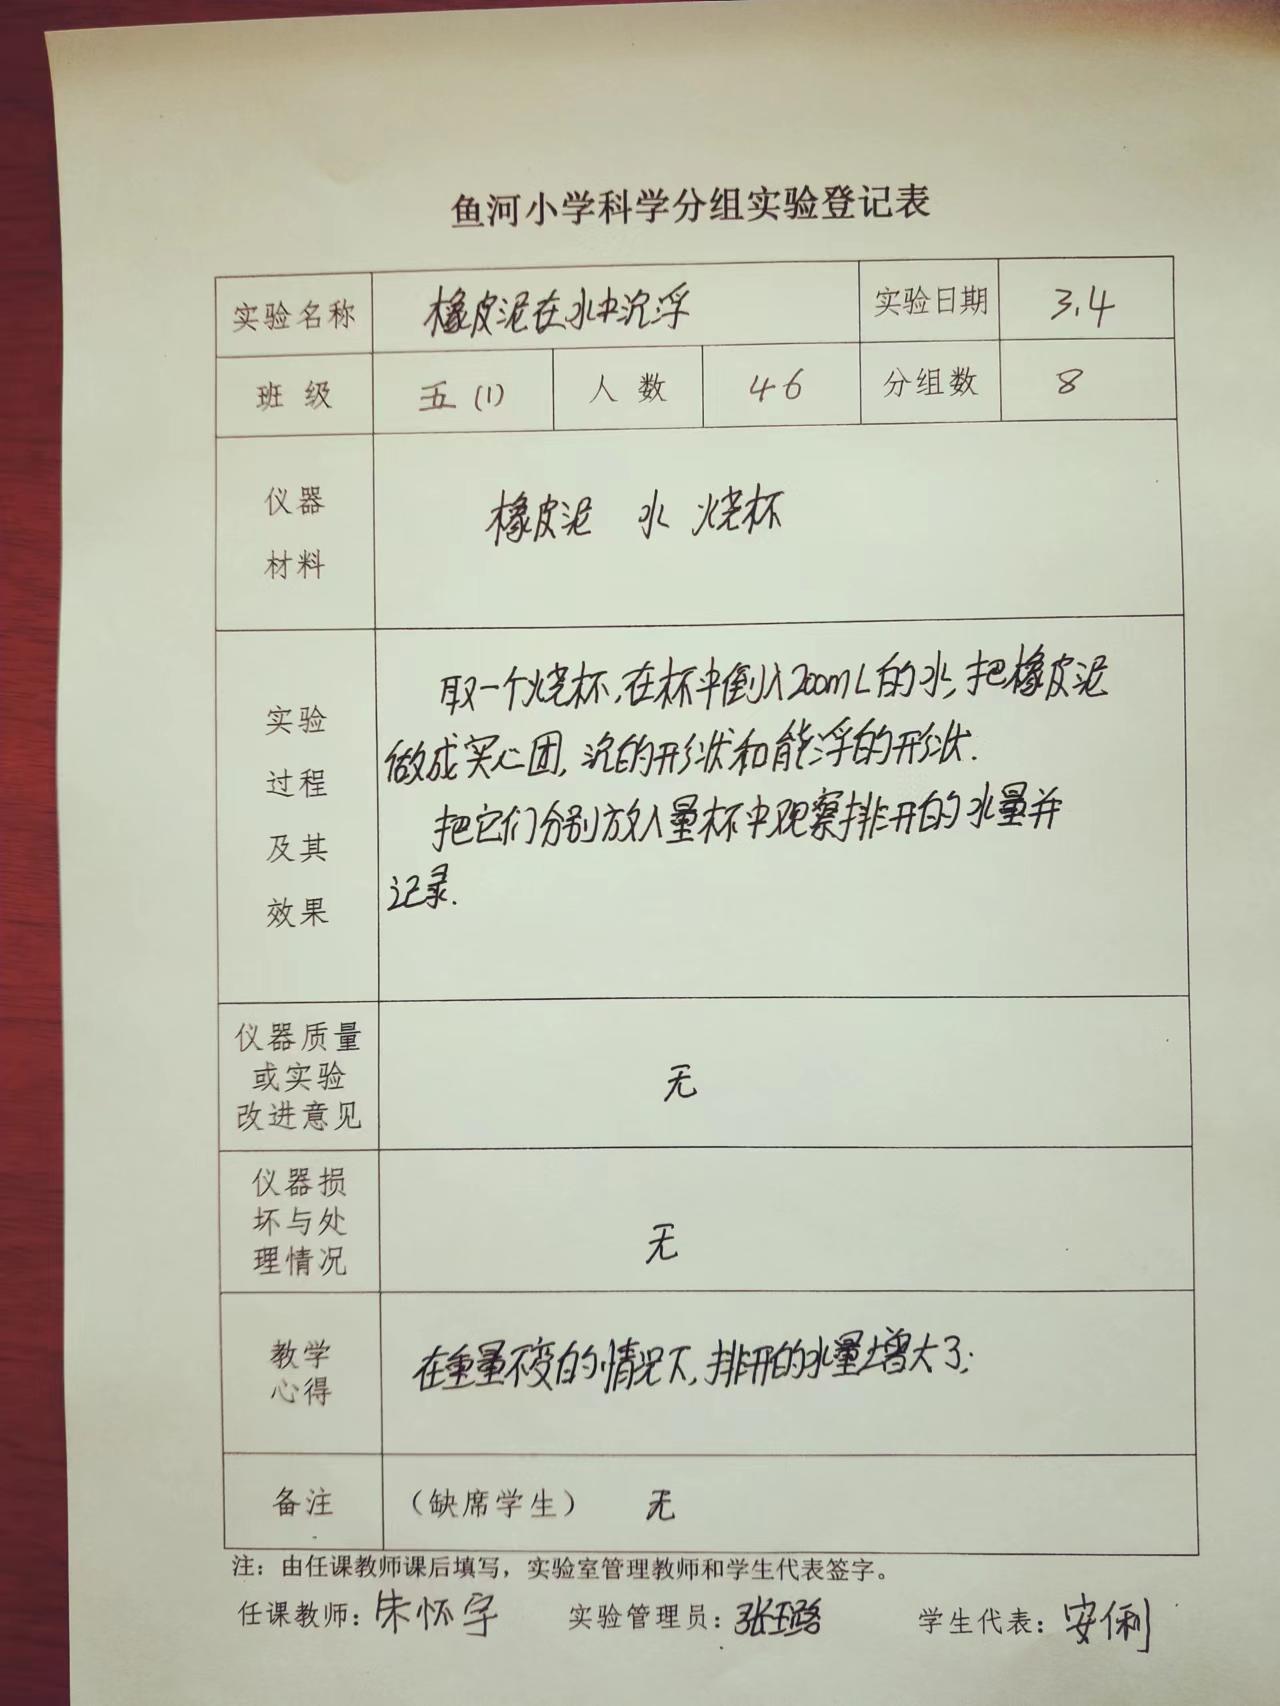 鱼河小学科学分组实验登记表
实验名称 橡皮泥在水中沉浮 实验日期 3.4
班级 五(1) 人数 46 分组数 8
仪器
材料
橡皮泥 水 烧杯
实验
过程
及其
效果
取一个烧杯,在杯中倒入200mL的水,把橡皮泥
做成实心团,沉的形状和能浮的形状.
把它们分别放入量杯中观察排开的水量并
记录.
仪器质量
或实验
改进意见
无
仪器损
坏与处
理情况
无
教学
心得
在重量不变的情况下,排开的水量增大了;
备注 (缺席学生) 无
注:由任课教师课后填写,实验室管理教师和学生代表签字。
任课教师:朱怀宇 实验管理员:张璐 学生代表:安俐